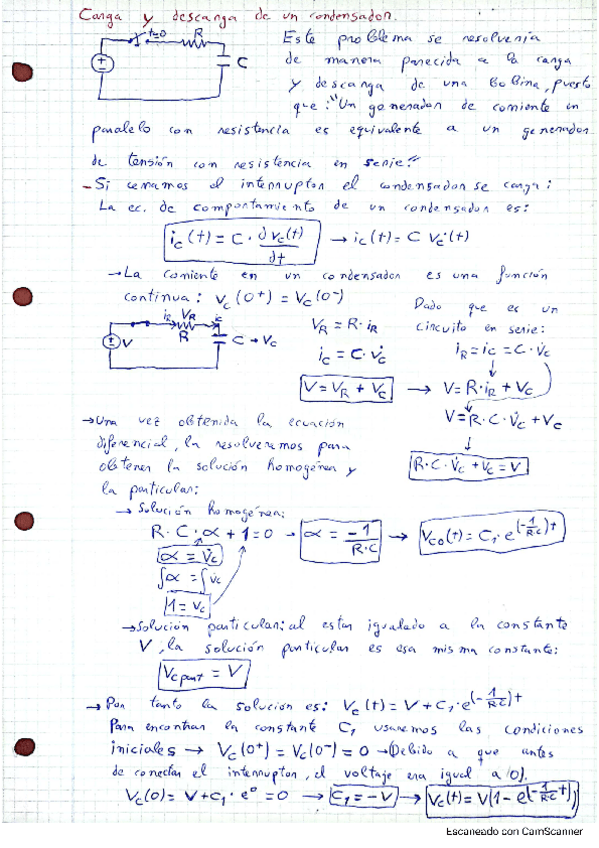 Carga y descarga de un condensador.
t=0 R C
Este problema se resolvería
de manera parecida a la carga
y descarga de una bobina, puesto
que: "Un generador de corriente en
paralelo con resistencia es equivalente a un generador
de tensión con resistencia en serie."
- Si cerramos el interruptor el condensador se carga:
La ec. de comportamiento de un condensador es:
ic(t) = C · dvc(t)/dt → ic(t) = C v̇c(t)
→ La corriente en un condensador es una función
continua: Vc(0⁺) = Vc(0⁻)
iR VR ic
V R C → Vc
VR = R·iR
ic = C·v̇c
V = VR + Vc →
Dado que es un
circuito en serie:
iR = ic = C·v̇c
V = R·iR + Vc
V = R·C·v̇c + Vc
R·C·v̇c + vc = V
→ Una vez obtenida la ecuación
diferencial, la resolveremos para
obtener la solución homogénea y
la particular:
→ Solución homogénea:
R·C·α + 1 = 0 → α = -1/R·C → Vco(t) = C₁·e^(-1/RC)t
α = v̇c
∫α = ∫v̇c
1 = vc
→ Solución particular: al estar igualado a la constante
V, la solución particular es esa misma constante:
Vcpart = V
→ Por tanto la solución es: Vc(t) = V + C₁·e^(-1/RC)t
Para encontrar la constante C₁ usaremos las condiciones
iniciales → Vc(0⁺) = Vc(0⁻) = 0 → (Debido a que antes
de conectar el interruptor, el voltaje era igual a 0).
Vc(0) = V + C₁·e⁰ = 0 → C₁ = -V → Vc(t) = V(1 - e^(-1/R·C t))
Escaneado con CamScanner